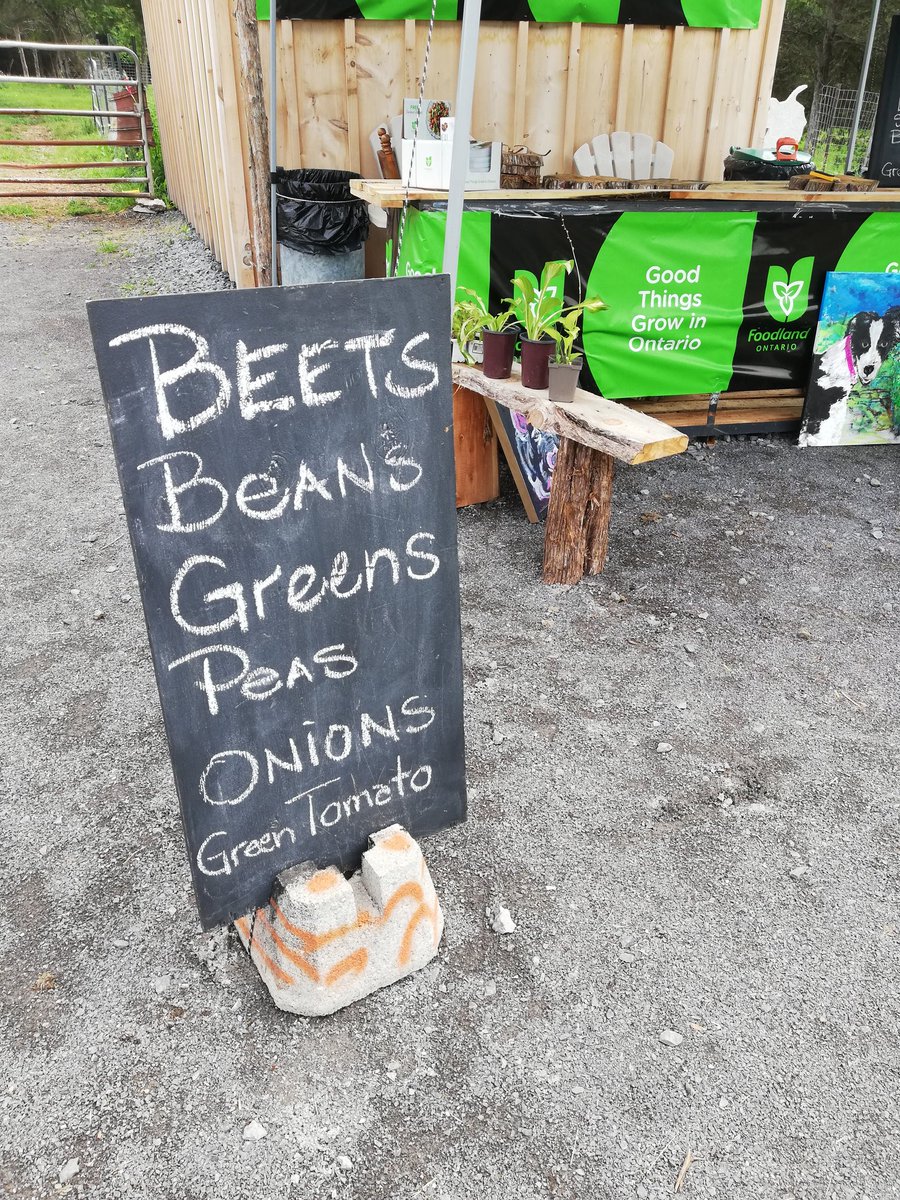 BEETS
BEANS
Greens
PEAS
ONIONS
Green Tomato
Good
Things
Grow in
Ontario
Foodland
ONTARIO